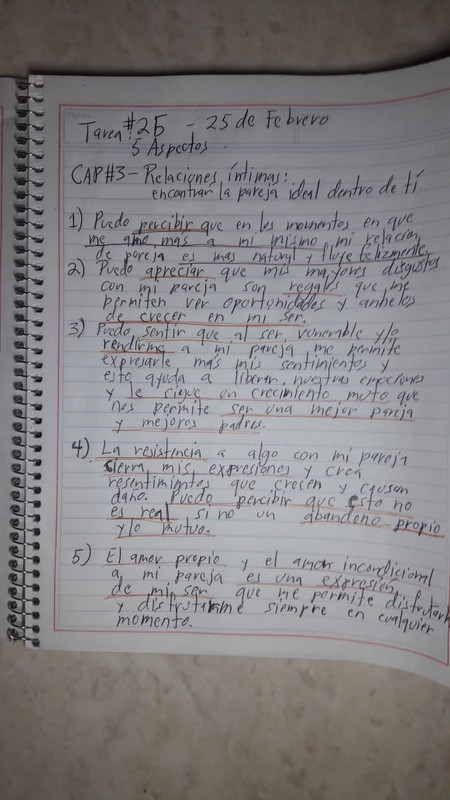 Tarea #25 - 25 de Febrero
5 Aspectos.
CAP#3 - Relaciones íntimas:
encontrar la pareja ideal dentro de tí
1) Puedo percibir que en los momentos en que
me amo mas a mi mismo, mi relación
de pareja es mas natural y fluye felizmente.
2) Puedo apreciar que mis mayores disgustos
con mi pareja son regalos que me
permiten ver oportunidades y anhelos
de crecer en mi ser.
3) Puedo sentir que al ser vunerable y/o
rendirme a mi pareja me permite
expresarle mas mis sentimientos y
esto ayuda a liberar nuestras emociones
y le sigue un crecimiento mutuo que
nos permite ser una mejor pareja
y mejores padres.
4) La resistencia a algo con mi pareja
sierra mis expresiones y crea
resentimientos que crecen y causan
daño. Puedo percibir que esto no
es real si no un abandono propio
y/o mutuo.
5) El amor propio y el amor incondicional
a mi pareja es una expresión
de mi ser que me permite disfrutarla
y disfrutarme siempre en cualquier
momento.